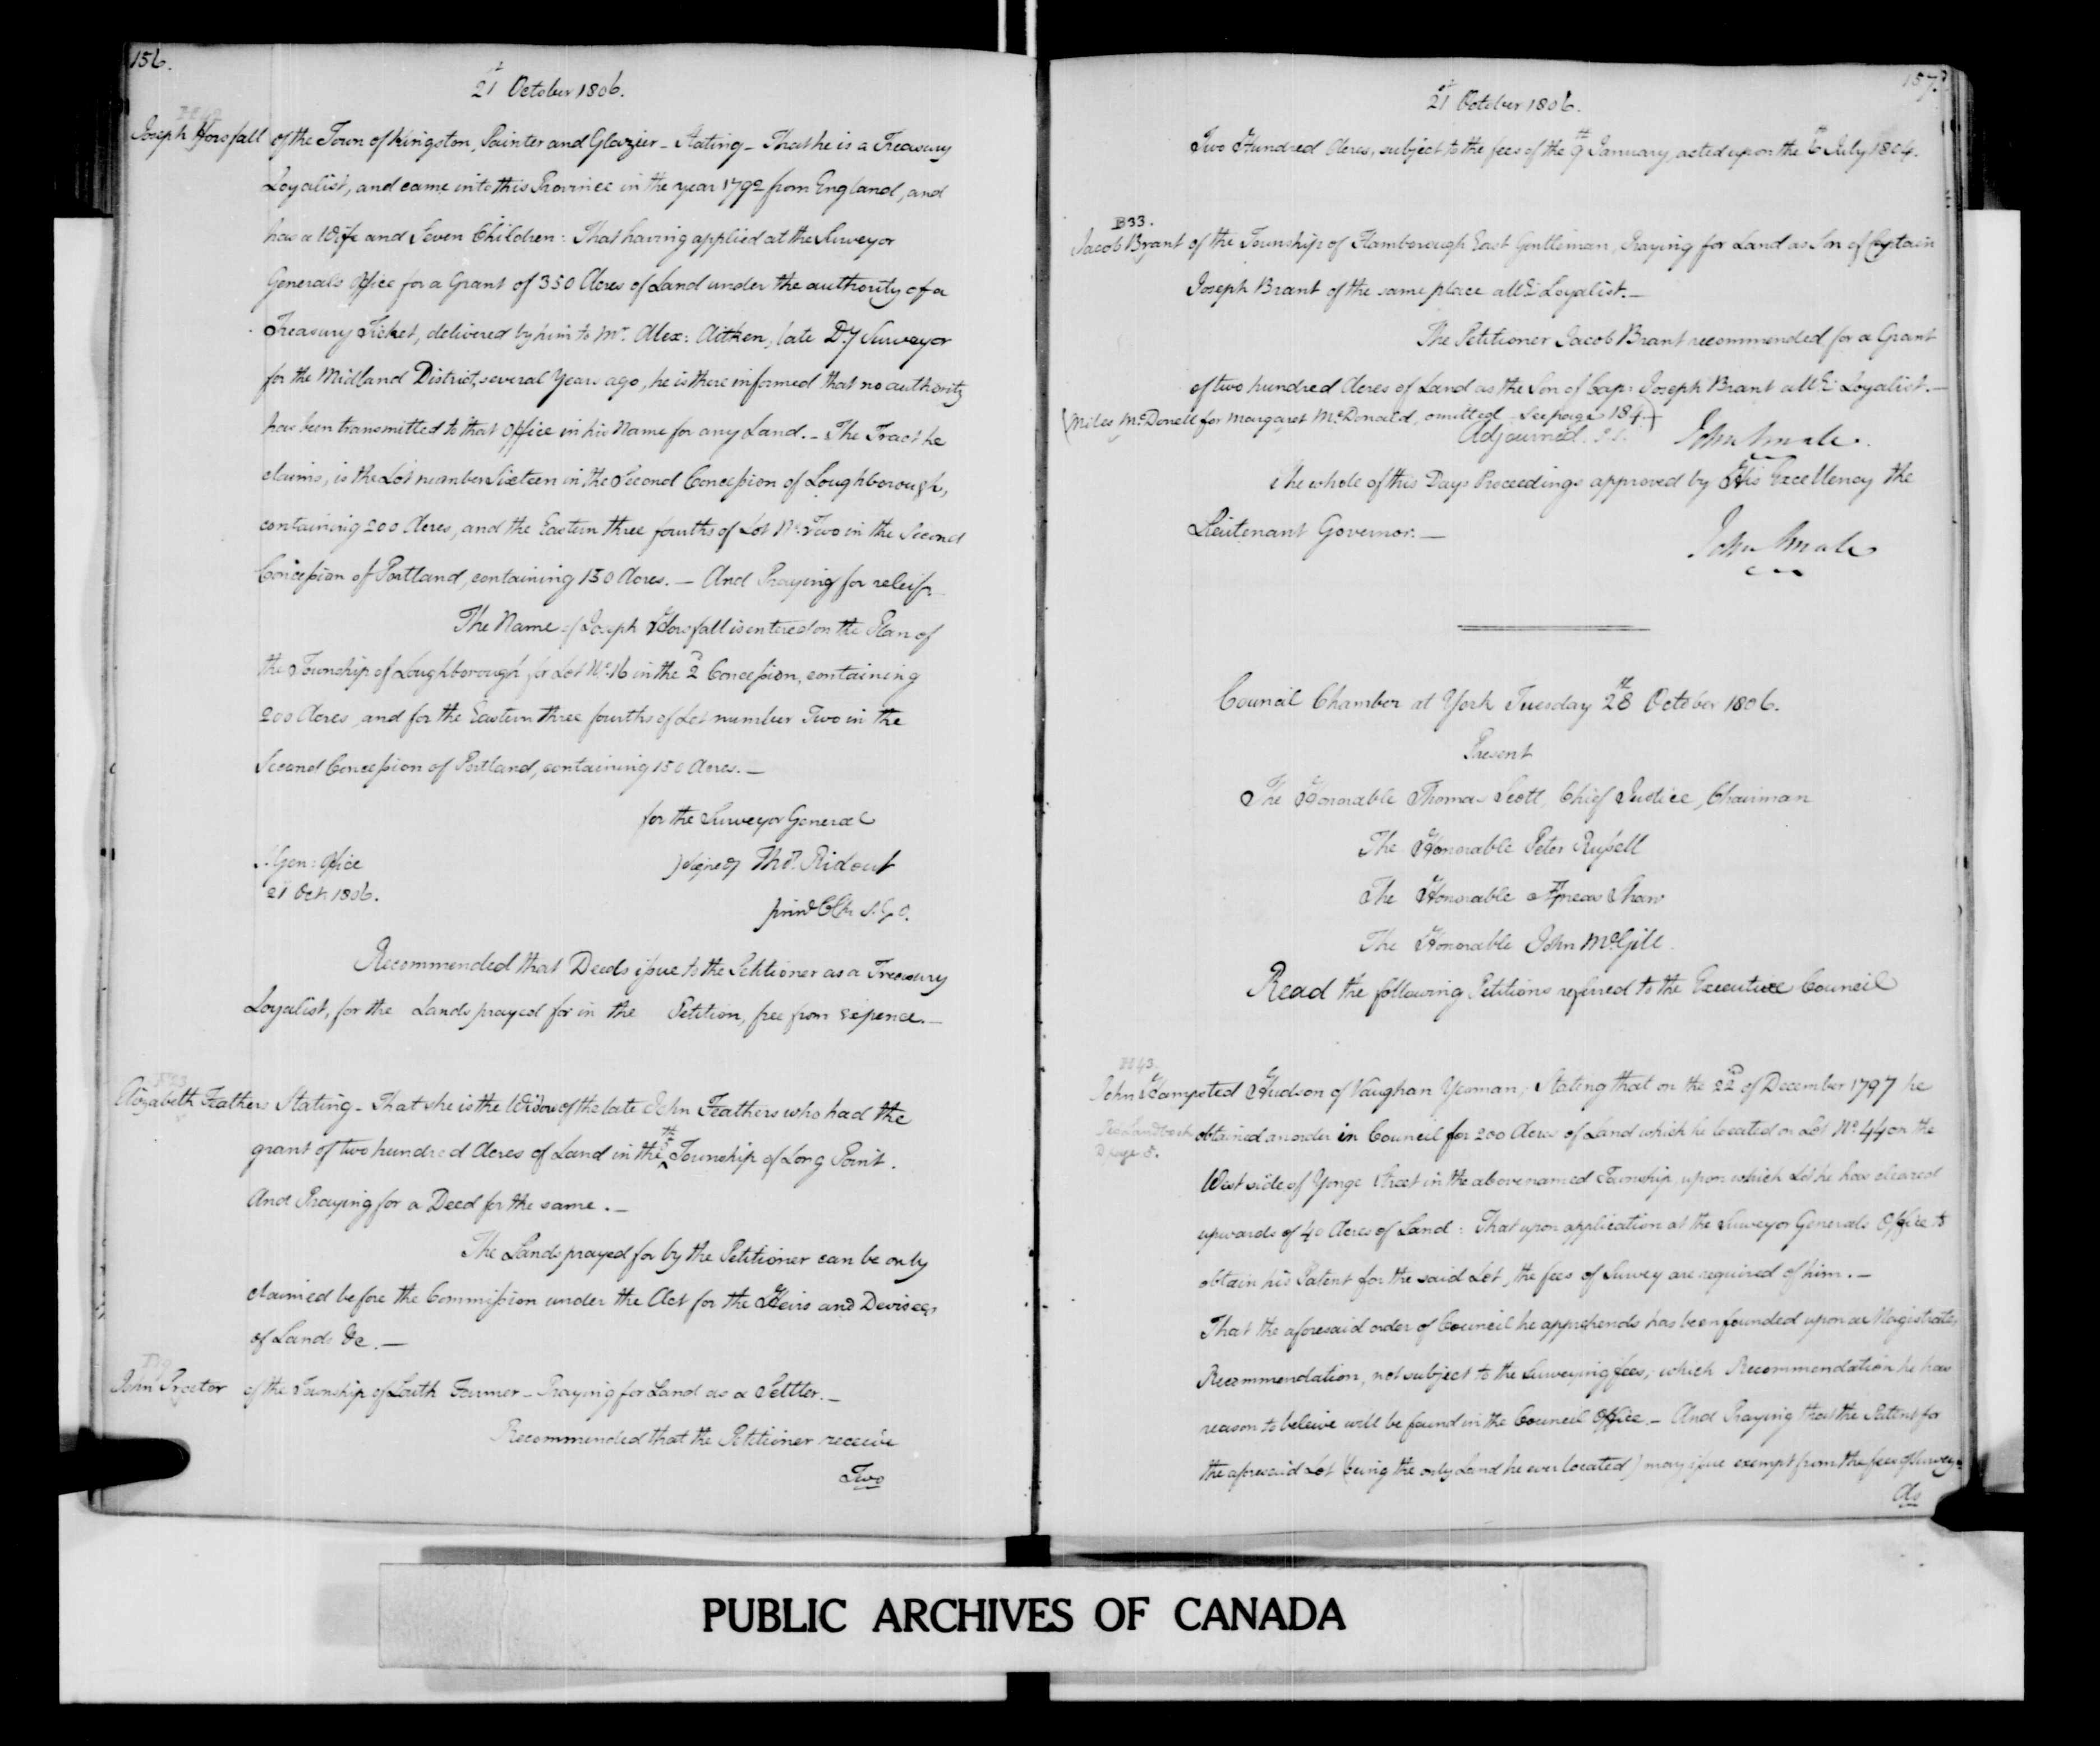 156.
21st October 1806.
Joseph Horsfall of the Town of Kingston, Painter and Glazier - Stating - That he is a Treasury
Loyalist, and came into this Province in the year 1792 from England, and
has a Wife and Seven Children: That having applied at the Surveyor
General's Office for a Grant of 350 Acres of Land under the authority of a
Treasury Ticket, delivered by him to Mr. Alex: Aitken, late D.y Surveyor
for the Midland District, several Years ago, he is there informed that no authority
has been transmitted to that Office in his Name for any Land. - The Tract he
claims, is the Lot number Sixteen in the Second Concession of Loughborough,
containing 200 Acres, and the Eastern three fourths of Lot No. Two in the Second
Concession of Portland, containing 150 Acres. - And Praying for releif.
The Name of Joseph Horsfall is entered on the Plan of
the Township of Loughborough for Lot No. 16 in the 2d Concession, containing
200 Acres, and for the Eastern three fourths of Lot number Two in the
Second Concession of Portland, containing 150 Acres. -
for the Surveyor General
S. Gen: Office
(signed) Thos. Ridout
21 Oct. 1806.
prinl. Clk S.G.O.
Recommended that Deeds issue to the Petitioner as a Treasury
Loyalist, for the Lands prayed for in the Petition, free from expence. -
Elizabeth Feathers Stating - That she is the Widow of the late John Feathers who had the
grant of two hundred Acres of Land in the Township of Long Point.
And Praying for a Deed for the same. -
The Lands prayed for by the Petitioner can be only
claimed before the Commission under the Act for the Heirs and Devisees
of Lands &c. -
John Proctor of the Township of Louth Farmer - Praying for Land as a Settler. -
Recommended that the Petitioner receive
Two
157.
21st October 1806.
Two Hundred Acres, subject to the fees of the 9th January, acted upon the 6th July 1804.
B33.
Jacob Brant of the Township of Flamborough East Gentleman, Praying for Land as Son of Captain
Joseph Brant of the same place a U.E. Loyalist. -
The Petitioner Jacob Brant recommended for a Grant
of two hundred Acres of Land as the Son of Cap: Joseph Brant a U.E. Loyalist. -
(Miles McDonell for Margaret McDonald, omitted - see page 184
Adjourned. John Small.
The whole of this Days Proceedings approved by His Excellency the
Lieutenant Governor. -
John Small
Council Chamber at York Tuesday 28th October 1806.
Present
The Honorable Thomas Scott, Chief Justice, Chairman
The Honorable Peter Russell
The Honorable Æneas Shaw
The Honorable John McGill.
Read the following Petitions referred to the Executive Council
H43.
John Hampsted Hudson of Vaughan Yeoman, Stating that on the 22d of December 1797 he
obtained an order in Council for 200 Acres of Land which he located on Lot No. 44 on the
D page 5.
West side of Yonge Street in the abovenamed Township, upon which Lot he has cleared
upwards of 40 Acres of Land: That upon application at the Surveyor Generals Office to
obtain his Patent for the said Lot, the fees of Survey are required of him. -
That the aforesaid order of Council he apprehends has been founded upon a Magistrates
Recommendation, not subject to the Surveying fees; which Recommendation he has
reason to beleive will be found in the Council Office. - And Praying that the Patent for
the aforesaid Lot (being the only Land he ever located) may issue exempt from the fees of Survey.
As
PUBLIC ARCHIVES OF CANADA